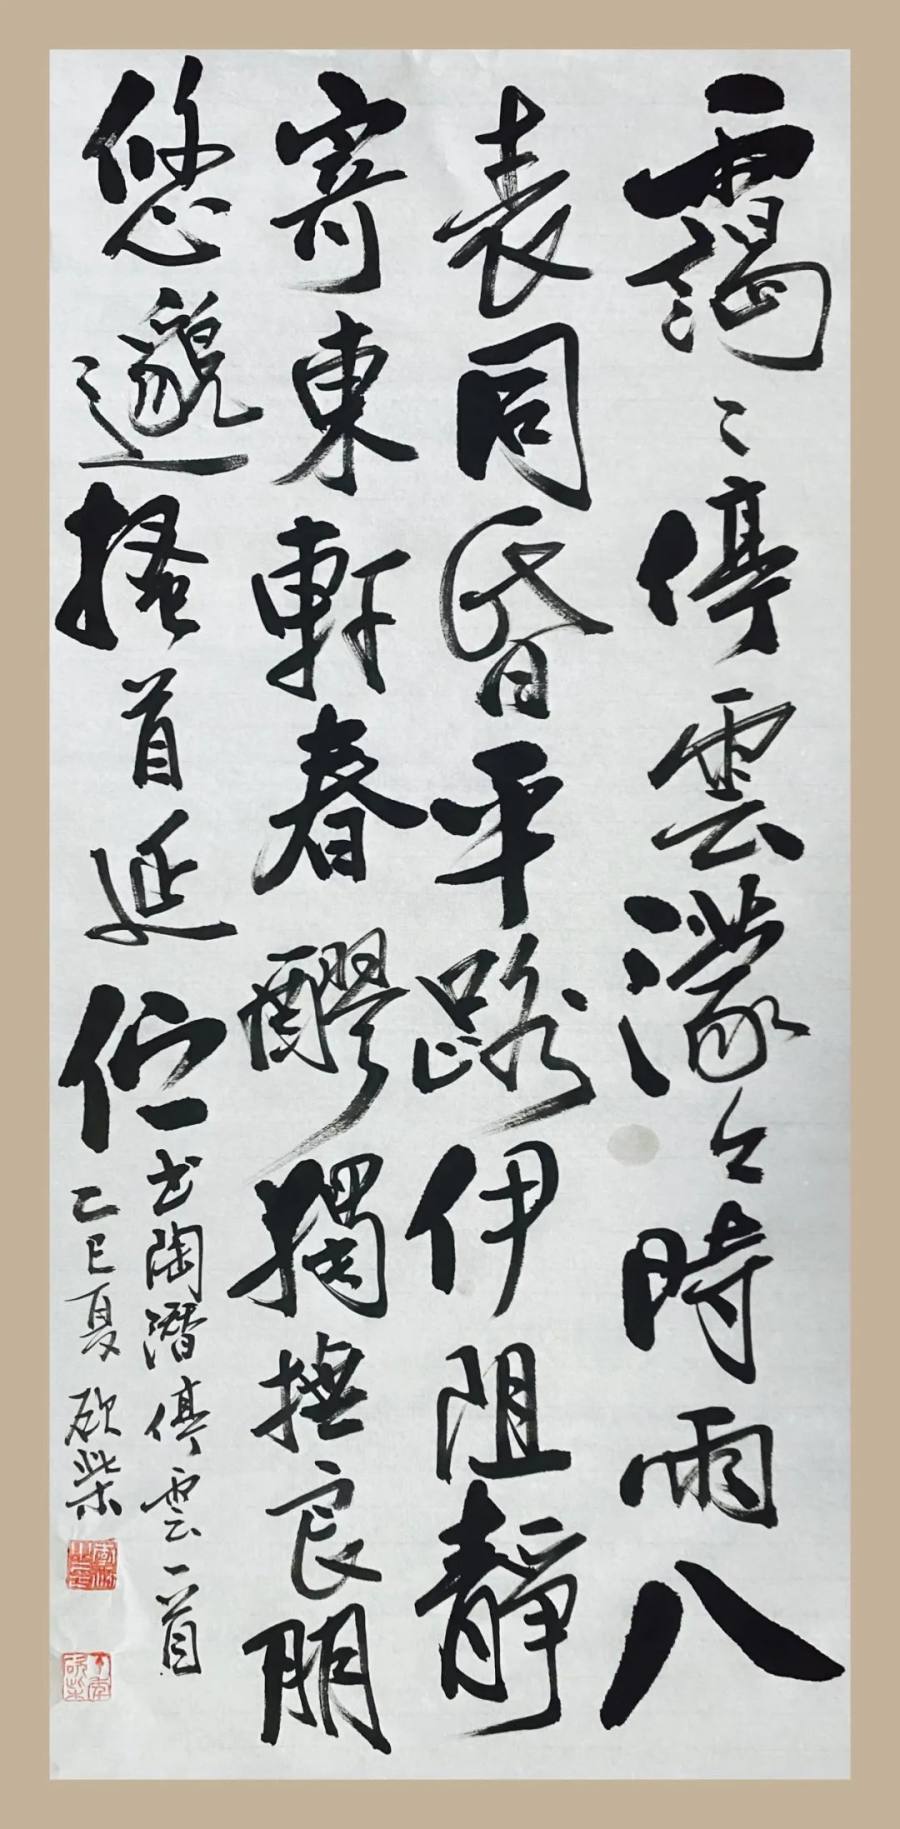 靄〻停雲濛〻時雨八
表同昏平路伊阻靜
寄東軒春醪獨撫良朋
悠邈搔首延佇
書陶潛停雲一首
乙巳夏 砍柴